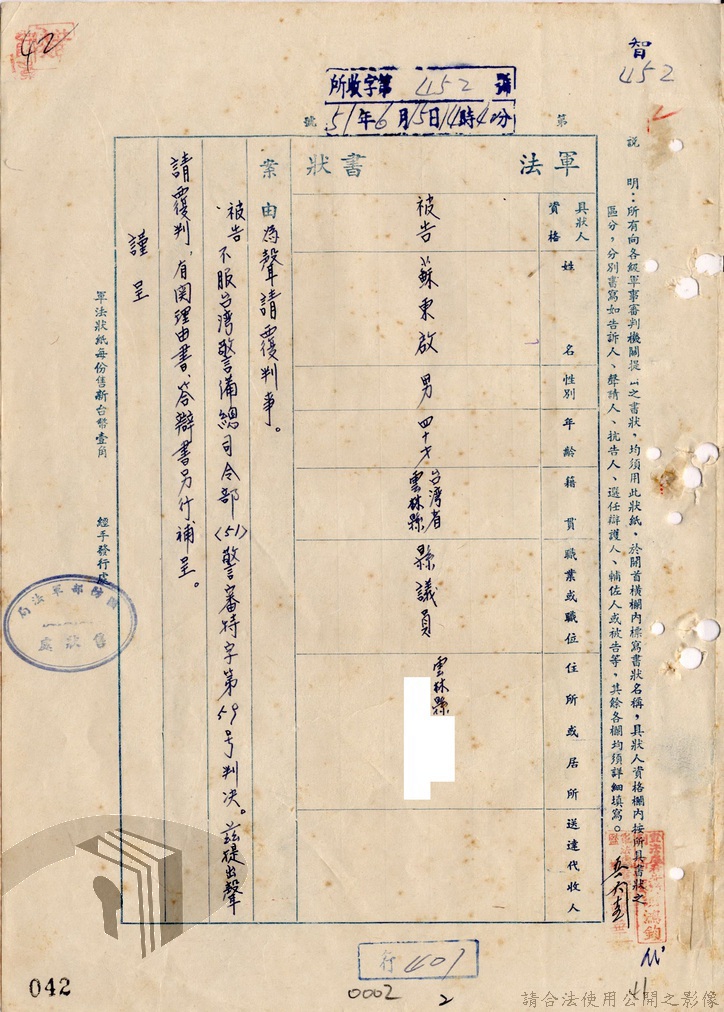 42
智
452
所收字第 452 號
51年6月15日14時40分
第
號
說明：所有向各級軍事審判機關提出之書狀，均須用此狀紙，於開首橫欄內標寫書狀名稱，具狀人資格欄內按所具書狀之
區分，分別書寫如告訴人、聲請人、抗告人、選任辯護人、輔佐人或被告等，其餘各欄均須詳細填寫。
軍法書狀
具狀人資格
姓名
性別
年齡
籍貫
職業或職位
住所或居所
送達代收人
被告
蘇東啟
男
四十才
台湾省
雲林縣
縣議員
雲林縣
案由為聲請覆判事。
被告不服台湾警備總司令部(51)警審特字第59号判决。茲提出聲
請覆判，有関理由書、答辯書另行補呈。
謹呈
軍法狀紙每份售新台幣壹角
經手發行處
國防部軍法局
售狀處
行 401
0002
2
41
042
請合法使用公開之影像